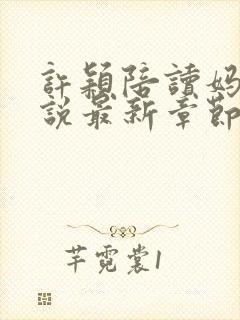 許穎陪讀媽
說最新章節
芋霓裳1